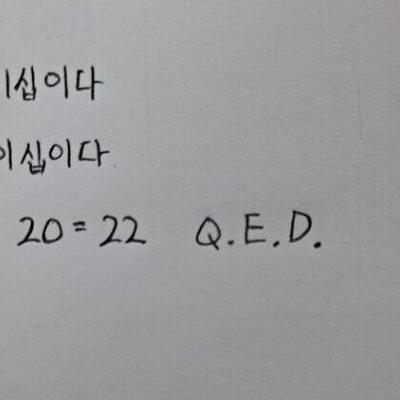 이십이다
이십이다
20 = 22 Q.E.D.